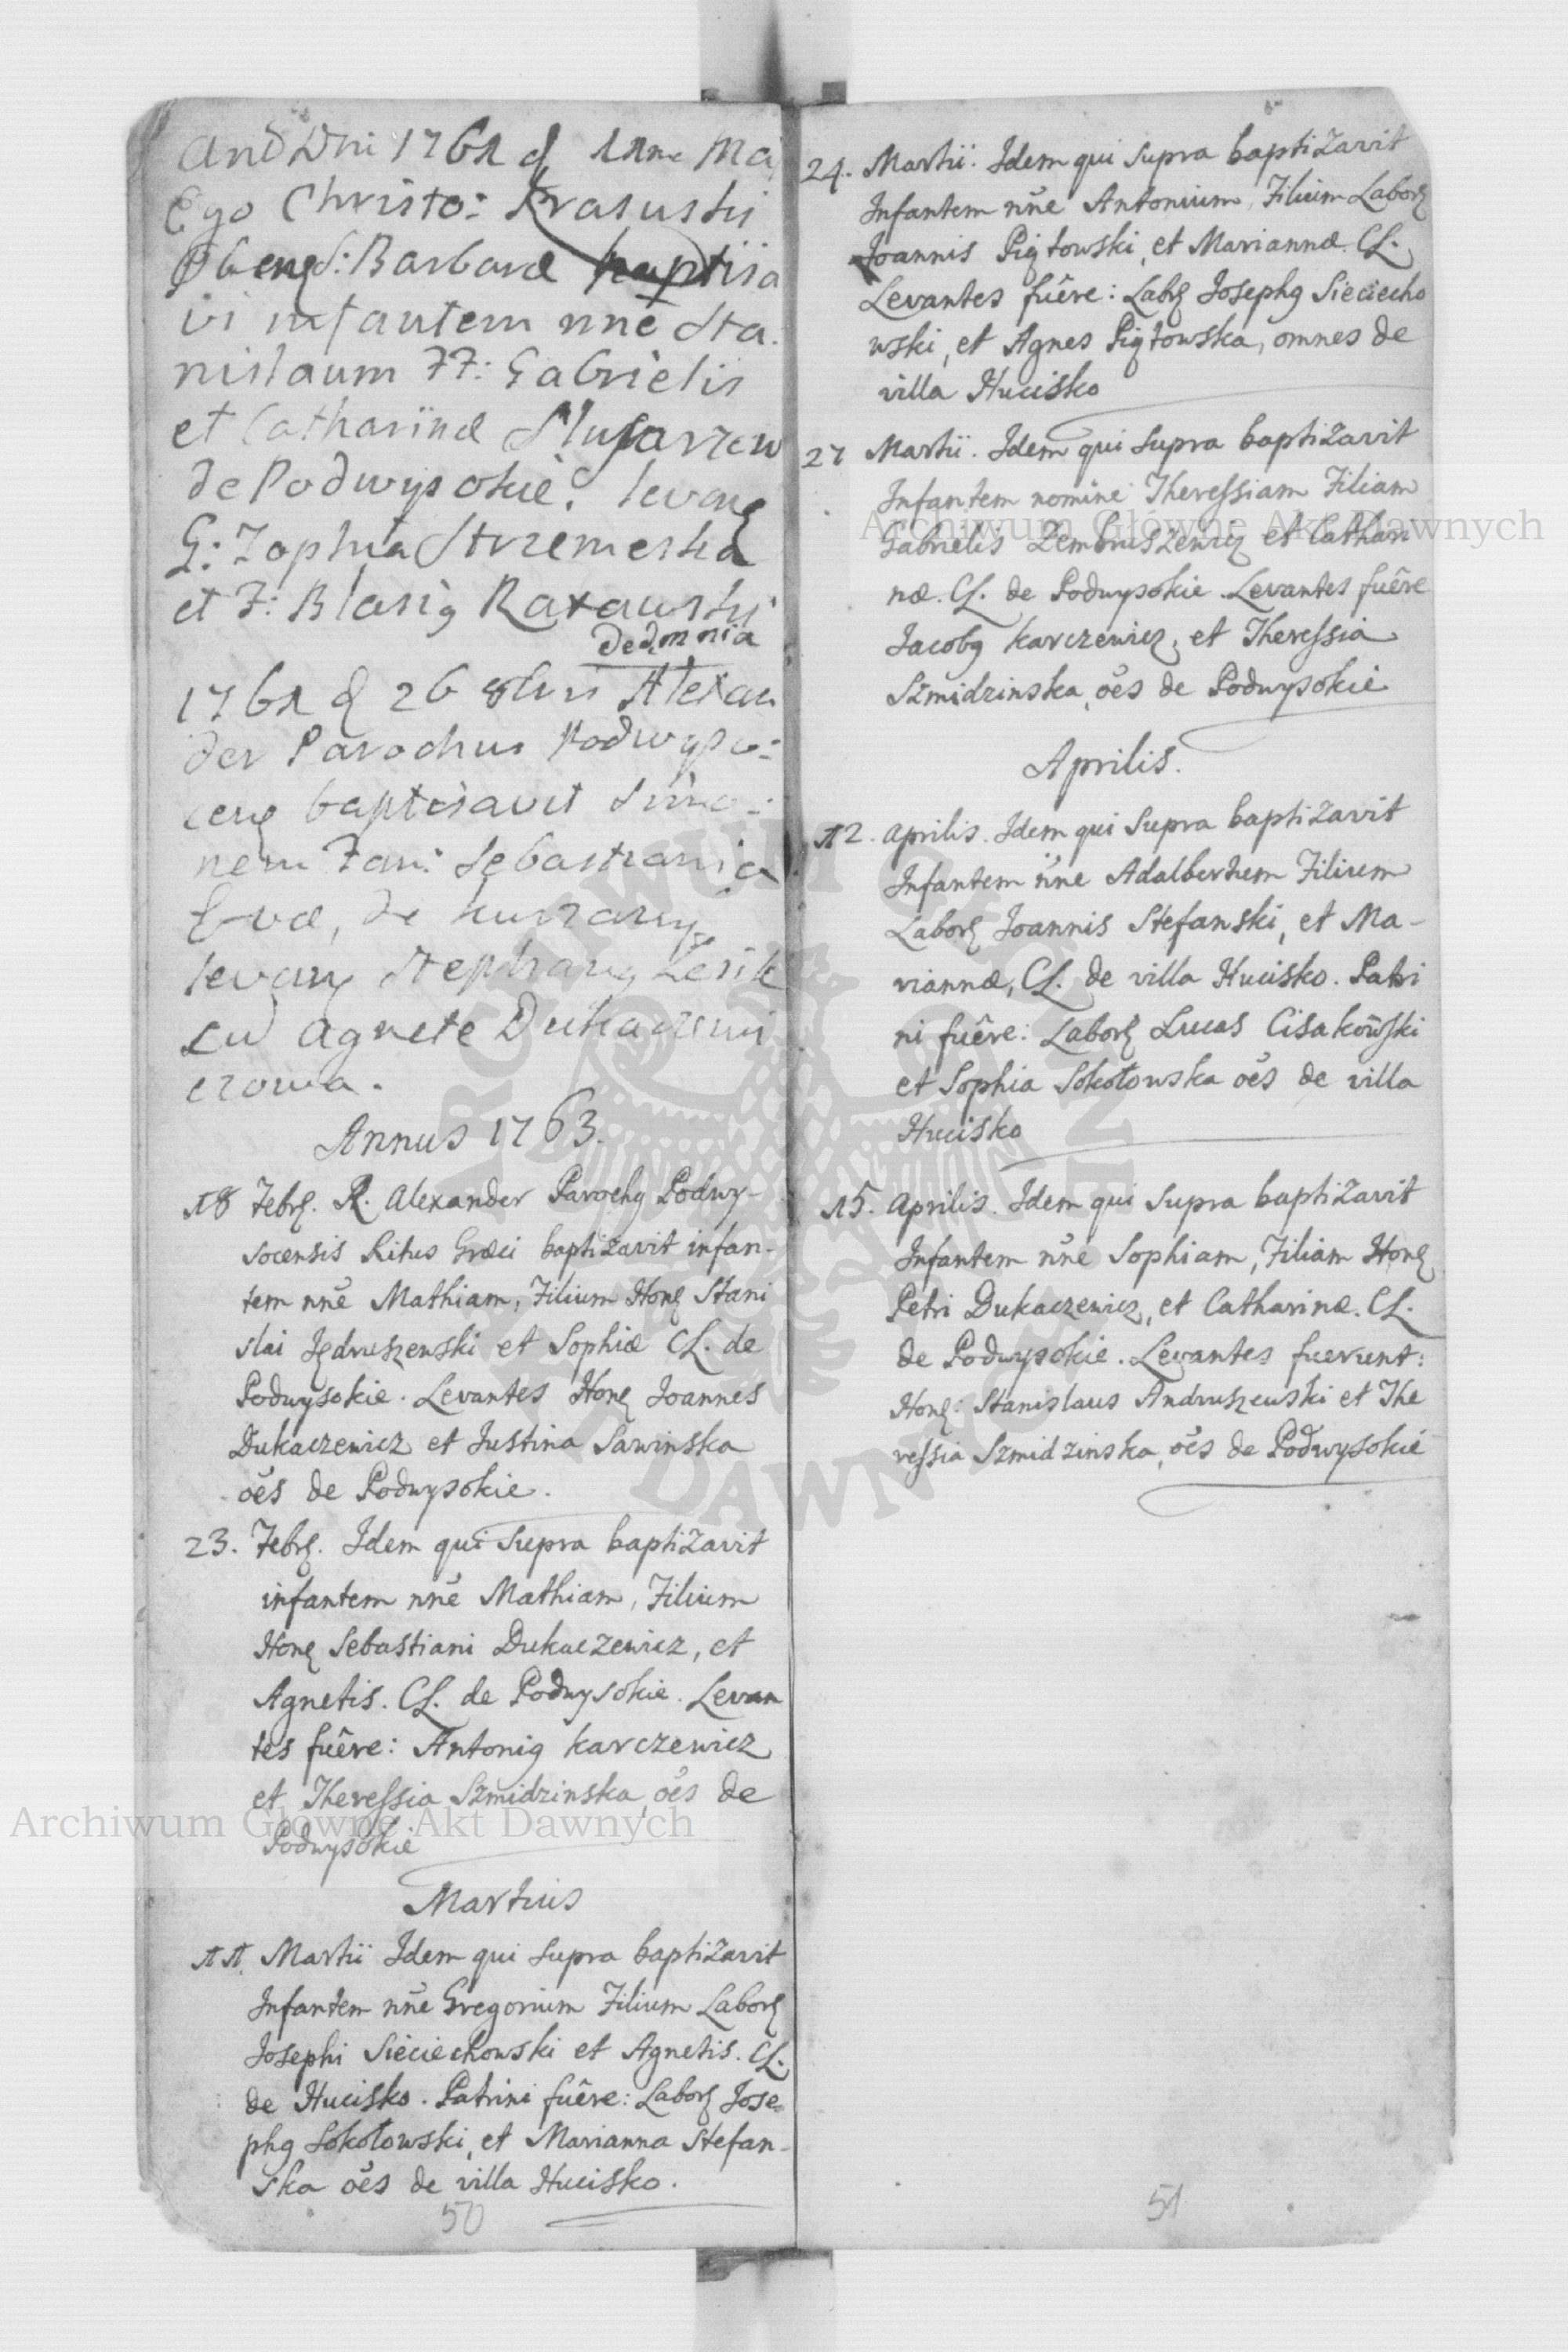 Anõ Dni 1761 d 11ma Maj
Ego Christo: Krasuski
Barbaræ baptisa
vi infantem nñe Sta.
nislaum FF: Gabrielis
et Catharinæ Slusarzew
de Podwysokie. levang
G: Zophia Strzemeska
et F: Blasig
de
1761 d 26 8bris Alexan
der Parochus Podwyso:
ceng baptisavit Simo:
nem Fam: Sebastiani
Evæ, de
levang Stephang
cu Agnete Dukaczewi
czowa.
Annus 1763.
18 Febr. R. Alexander Parochg Podwy-
socensis Ritus Græci baptizavit infan-
tem nñe Mathiam, Filium Hon Stani
slai Jędruszewski et Sophiæ CL. de
Podwysokie. Levantes Hon Joannes
Dukaczewicz et Justina Sawinska
oẽs de Podwysokie.
23. Febr. Idem qui supra baptizavit
infantem nñe Mathiam, Filium
Hon Sebastiani Dukaczewicz, et
Agnetis. CL. de Podwysokie. Levan
tes fuêre: Antonig Karczewicz
et Theressia Szmidzinska, oẽs de
Podwysokie
Martius
11. Martii Idem qui supra baptizavit
Infantem nñe Gregorium Filium Labor
Josephi Sieciechowski et Agnetis. CL.
de Hucisko. Patrini fuêre: Labor Jose=
phg Sokołowski, et Marianna Stefan-
ska oẽs de villa Hucisko.
50
24. Martii. Idem qui supra baptizavit
Infantem nñe Antonium, Filium Labor
Joannis Piątowski, et Mariannæ. CL.
Levantes fuêre: Labr Josephg Sieciecho
wski, et Agnes Piątowska, omnes de
villa Hucisko
27 Martii. Idem qui supra baptizavit
Infantem nomine Theressiam Filiam
Gabrielis et Cathari
næ. CL. de Podwysokie. Levantes fuêre
Jacobg Karczewicz, et Theressia
Szmidzinska, oẽs de Podwysokie
Aprilis.
12. Aprilis. Idem qui supra baptizavit
Infantem nñe Adalbertum Filium
Labor Joannis Stefanski, et Ma-
riannæ, CL. de villa Hucisko. Patri
ni fuêre: Labor Lucas Cisakowski
et Sophia Sokołowska oẽs de villa
Hucisko
15. Aprilis. Idem qui supra baptizavit
Infantem nñe Sophiam, Filiam Hon
Petri Dukaczewicz, et Catharinæ. CL.
de Podwysokie. Levantes fuerunt:
Hon: Stanislaus Andruszewski et The
ressia Szmidzinska, oẽs de Podwysokie
51
Archiwum Główne Akt Dawnych
Archiwum Główne Akt Dawnych
ARCHIWUM GŁÓWNE AKT DAWNYCH